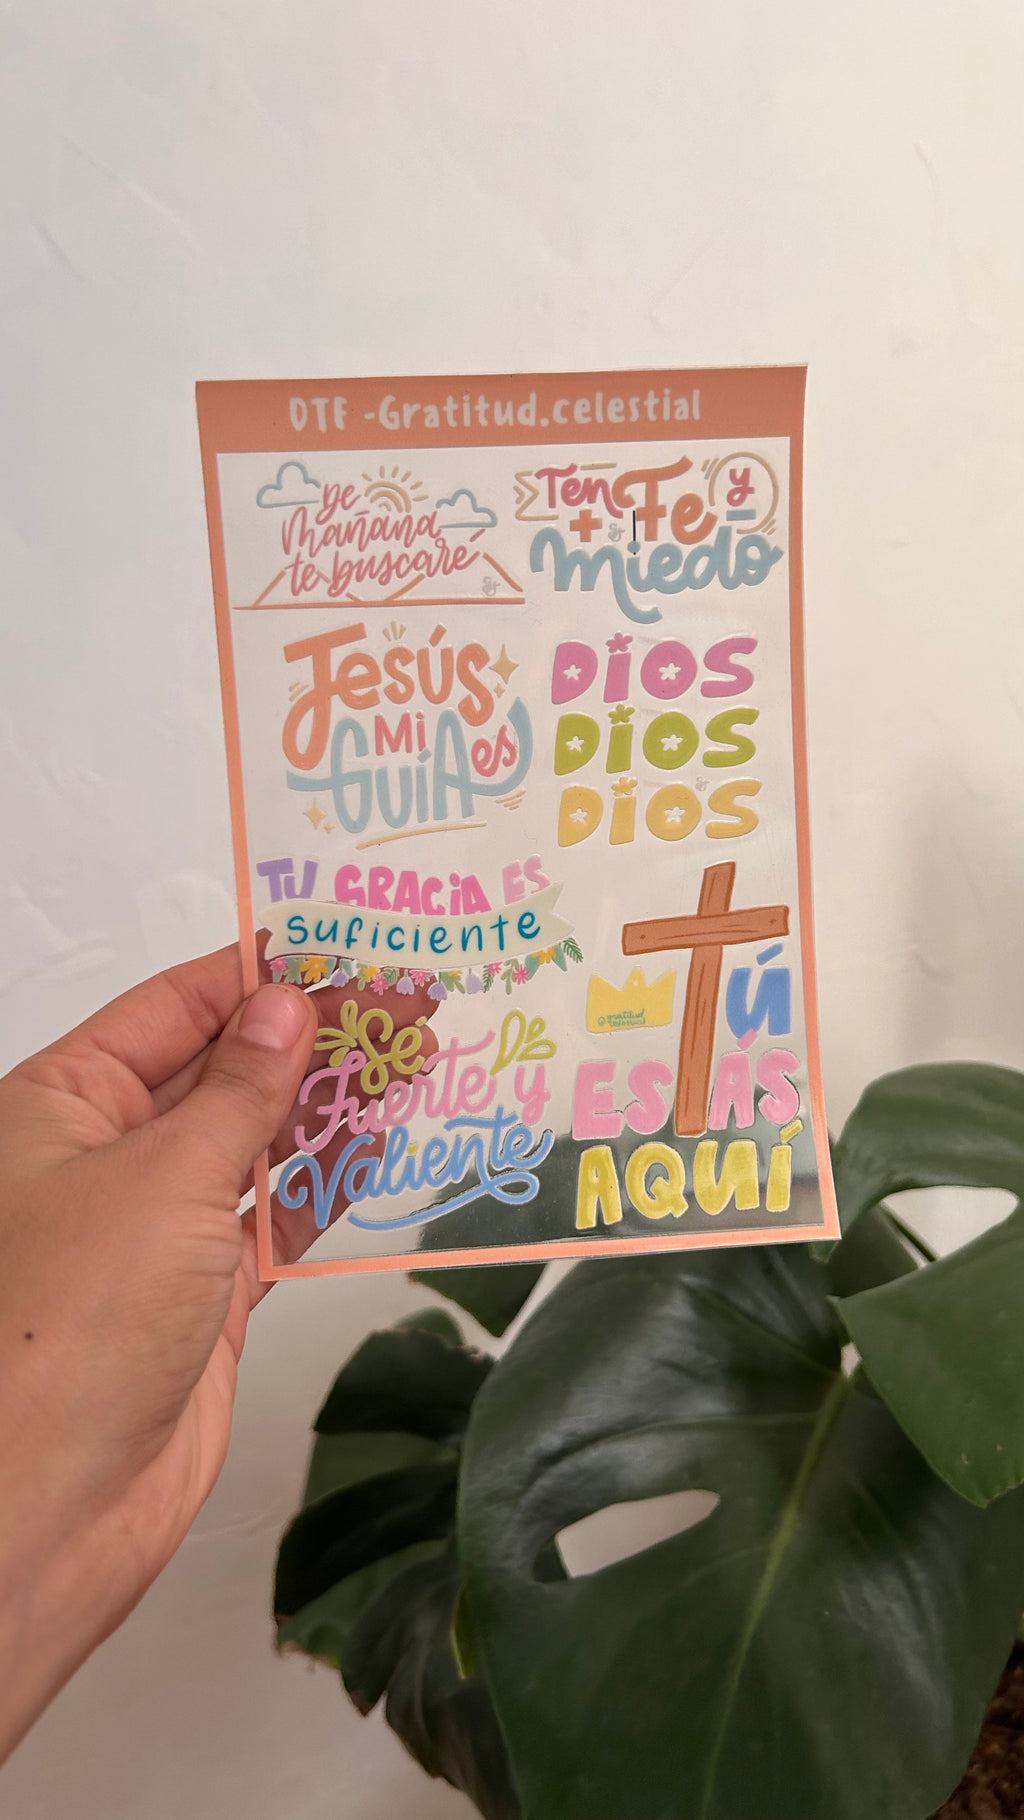 DTF -Gratitud.celestial
De
mañana
te buscaré
Ten + Fe y -
miedo
Jesús
Mi
Guía es
DIOS
DIOS
DIOS
TU GRACIA ES
suficiente
Sé
Fuerte y
Valiente
@gratitud
TÚ
ESTÁS
AQUÍ